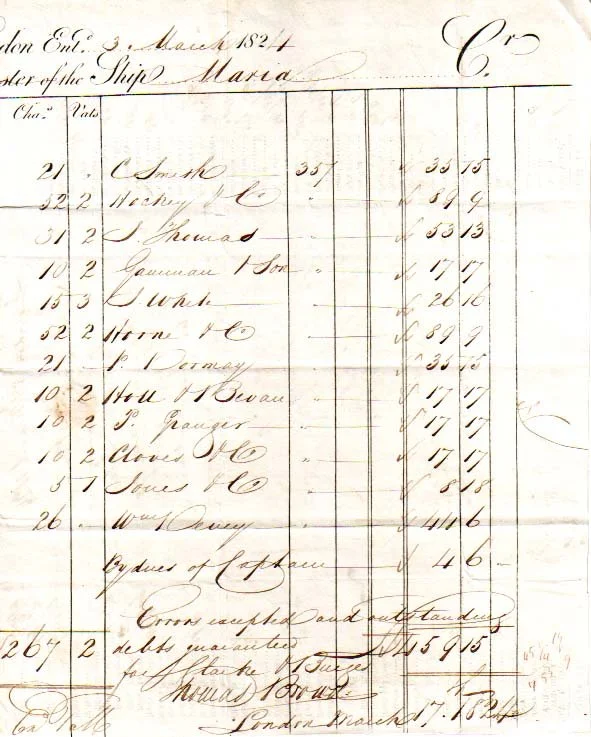 don Ent.d 3 March 1824 Cr
ster of the Ship Maria
Cha.s Vats
21 . C Smith 357 35 15
52 2 Hockey & Co " 89 9
31 2 J. Thomas " 53 13
10 2 Gamman & Son " 17 17
15 3 J White " 26 16
52 2 Horne & Co " 89 9
21 - P. Dormay " 35 15
10 2 Holl & Bevan " 17 17
10 2 P. Granger " 17 17
10 2 Cloves & Co " 17 17
5 1 Jones & Co " 8 18
26 . Wm Devey " 44 6
By dues of Captain 4 6 -
Errors excepted and outstanding
267 2 debts guaranteed £459 15
for J Clarke & Burges
Thomas Brown
London March 17. 1824